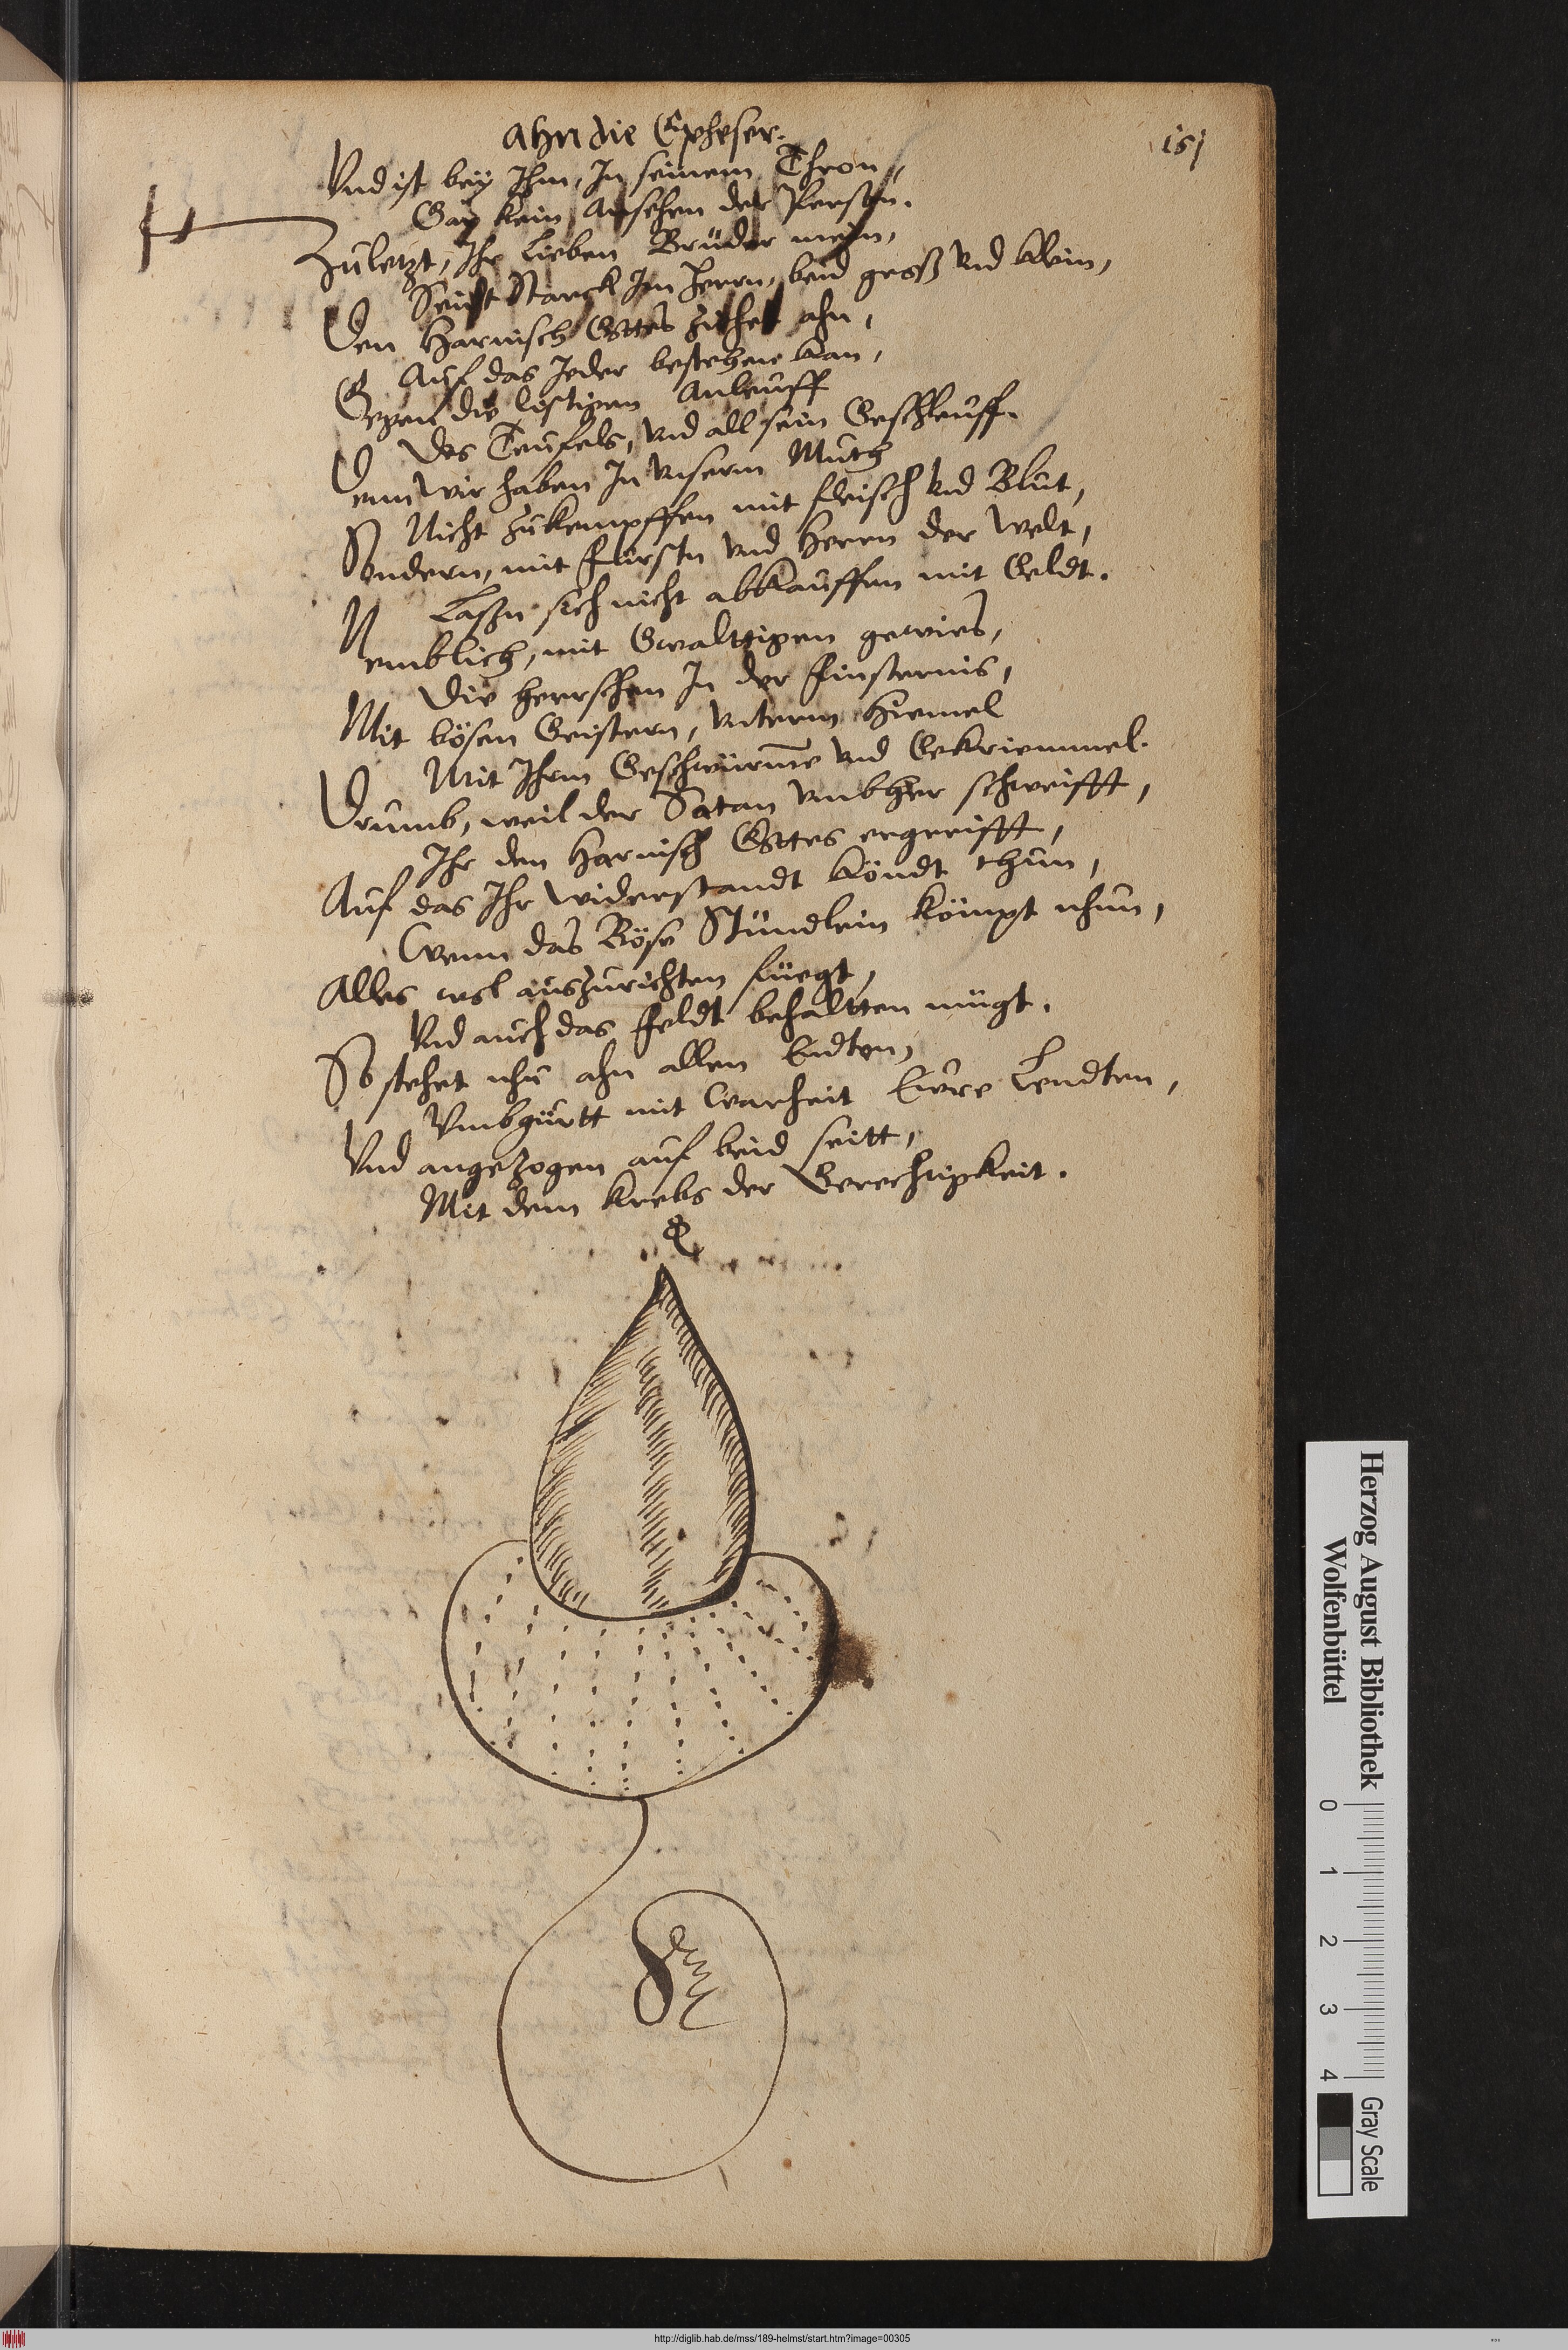 ahn die Epheser.
151
Vnd ist bey Ihm, In seinem Thron,
Gar kein Ansehen der Person.
Zuletzt, Ihr lieben Brüder mein,
Seidt Starck Im Herrn, beid gros vnd klein,
Den Harnisch Gottes ziehet ahn,
Auf das Jeder bestehene kan,
Gegen die listigen Anleuff
Des Teufels, vnd all sein Geschleuff.
Denn wir haben In vnserm Muth
Nicht zukempffen mit fleisch vnd Blut,
Sondern, mit fürstn vnd Herrn der Welt,
Laßn sich nicht abkauffen mit Geldt.
Nemblich, mit Gwalttigen gewies,
Die herrschen In der finsternis,
Mit bösen Geistern, vnterm Hiemel
Mit Ihrm Geschwürme vnd Gekriemmel.
Drumb, weil der Satan vmbher schweifft,
Ihr den Harnisch Gottes ergreifft,
Auf das Ihr widerstandt köndt thun,
Wenn das Böse Stündlein kömpt nhun,
Alles wol auszurichten füegt,
Vnd auch das feldt behaltten mügt.
So stehet nhu ahn allen Endten,
Vmbgürtt mit Warheit Ewre Lendten,
Vnd angezogen auf beid seitt,
Mit dem Krebs der Gerechtigkeit.
Herzog August Bibliothek
Wolfenbüttel
0 1 2 3 4
Gray Scale
http://diglib.hab.de/mss/189-helmst/start.htm?image=00305